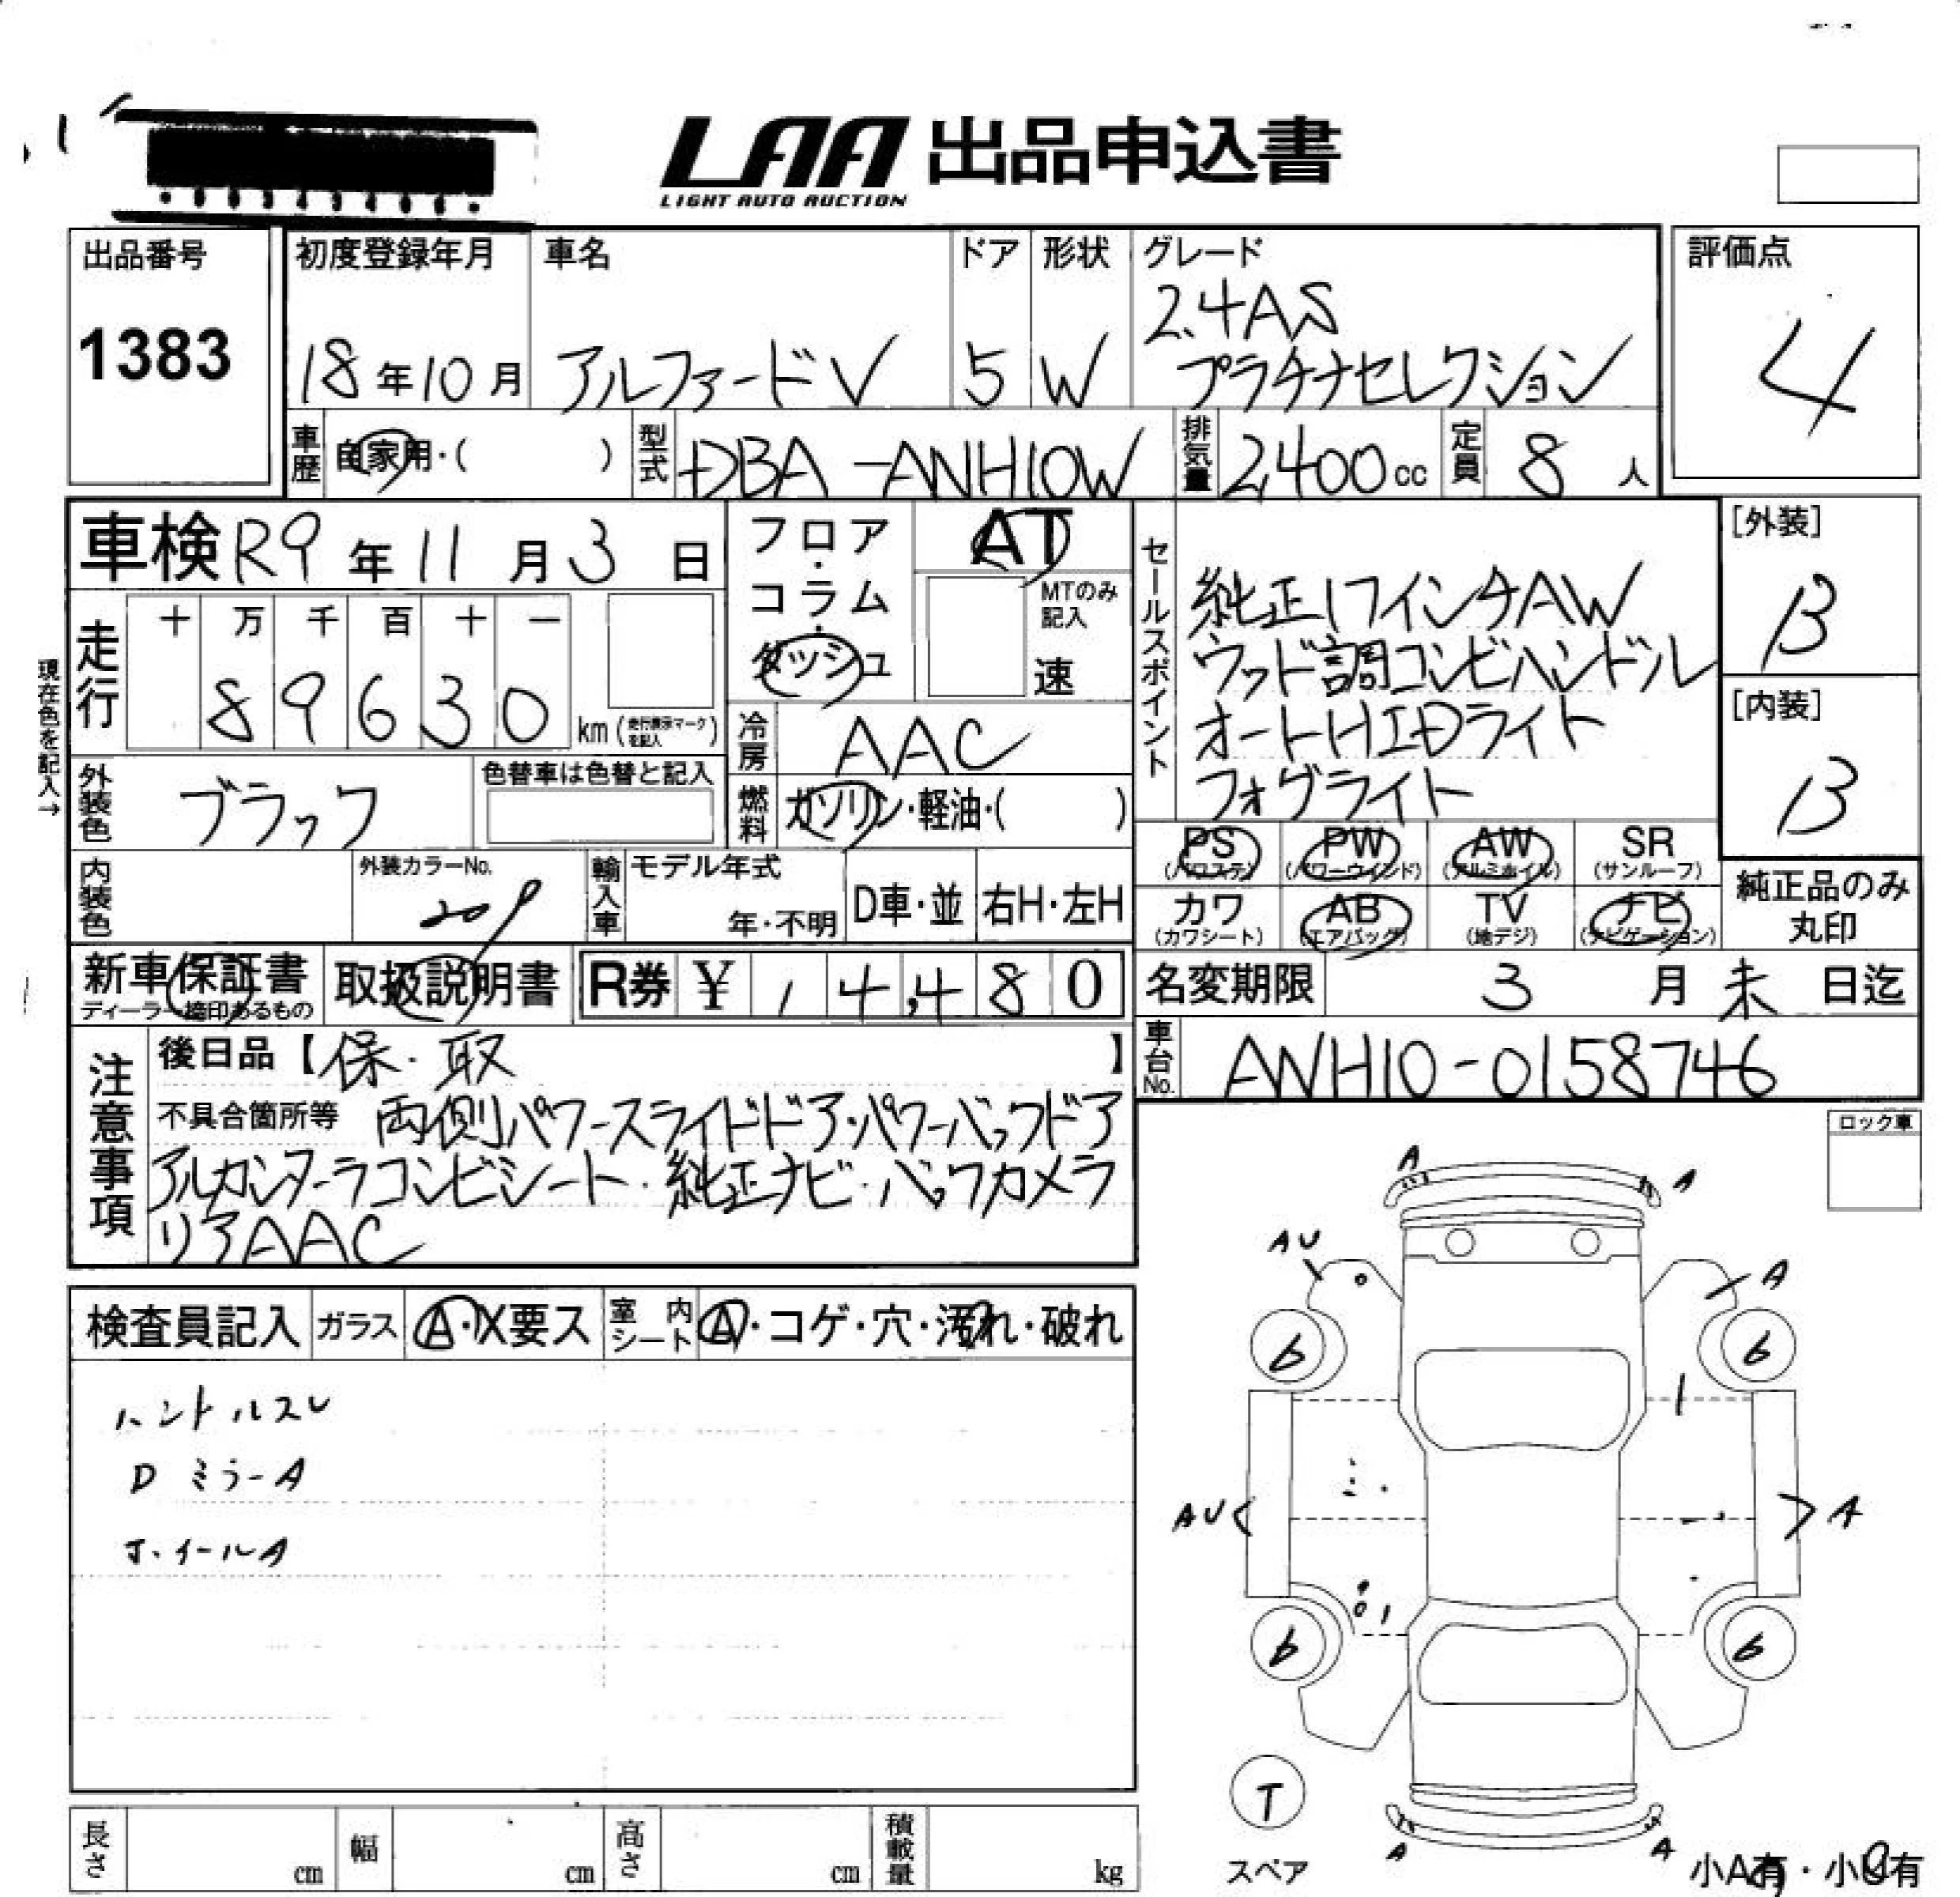 LAA 出品申込書
LIGHT AUTO AUCTION
出品番号
1383
初度登録年月
18年10月
車名
アルファードV
ドア
5
形状
W
グレード
2.4AS
プラチナセレクション
評価点
4
車歴 自家用・( )
型式 DBA-ANH10W
排気量 2,400cc
定員 8人
車検 R9年11月3日
フロア・コラム・ダッシュ
AT
MTのみ記入
速
現在色を記入→
走行
十 万 千 百 十 一
89630 km (走行表示マークを記入)
冷房 AAC
外装色 ブラック
色替車は色替と記入
燃料 ガソリン・軽油・( )
セールスポイント
純正17インチAW
ウッド調コンビハンドル
オートHIDライト
フォグライト
[外装]
B
[内装]
B
PS PW AW SR
(パワステ) (パワーウインド) (アルミホイル) (サンルーフ)
カワ AB TV ナビ
(カワシート) (エアバッグ) (地デジ) (ナビゲーション)
純正品のみ
丸印
内装色
外装カラーNo.
209
輸入車
モデル年式
年・不明
D車・並
右H・左H
新車保証書
ディーラー捺印あるもの
取扱説明書
R券 ¥ 14,480
名変期限 3月末日迄
車台No. ANH10-0158746
注意事項
後日品【保・取】
不具合箇所等 両側パワースライドドア・パワーバックドア
アルカンターラコンビシート・純正ナビ・バックカメラ
リアAAC
ロック車
検査員記入
ガラス A・X要ス
室内シート A・コゲ・穴・汚れ・破れ
ハンドルスレ
DミラーA
ホイールA
A A
AU A
6 6
AU A
6 6
T
スペア
A A
小A有・小U有
長さ cm
幅 cm
高さ cm
積載量 kg